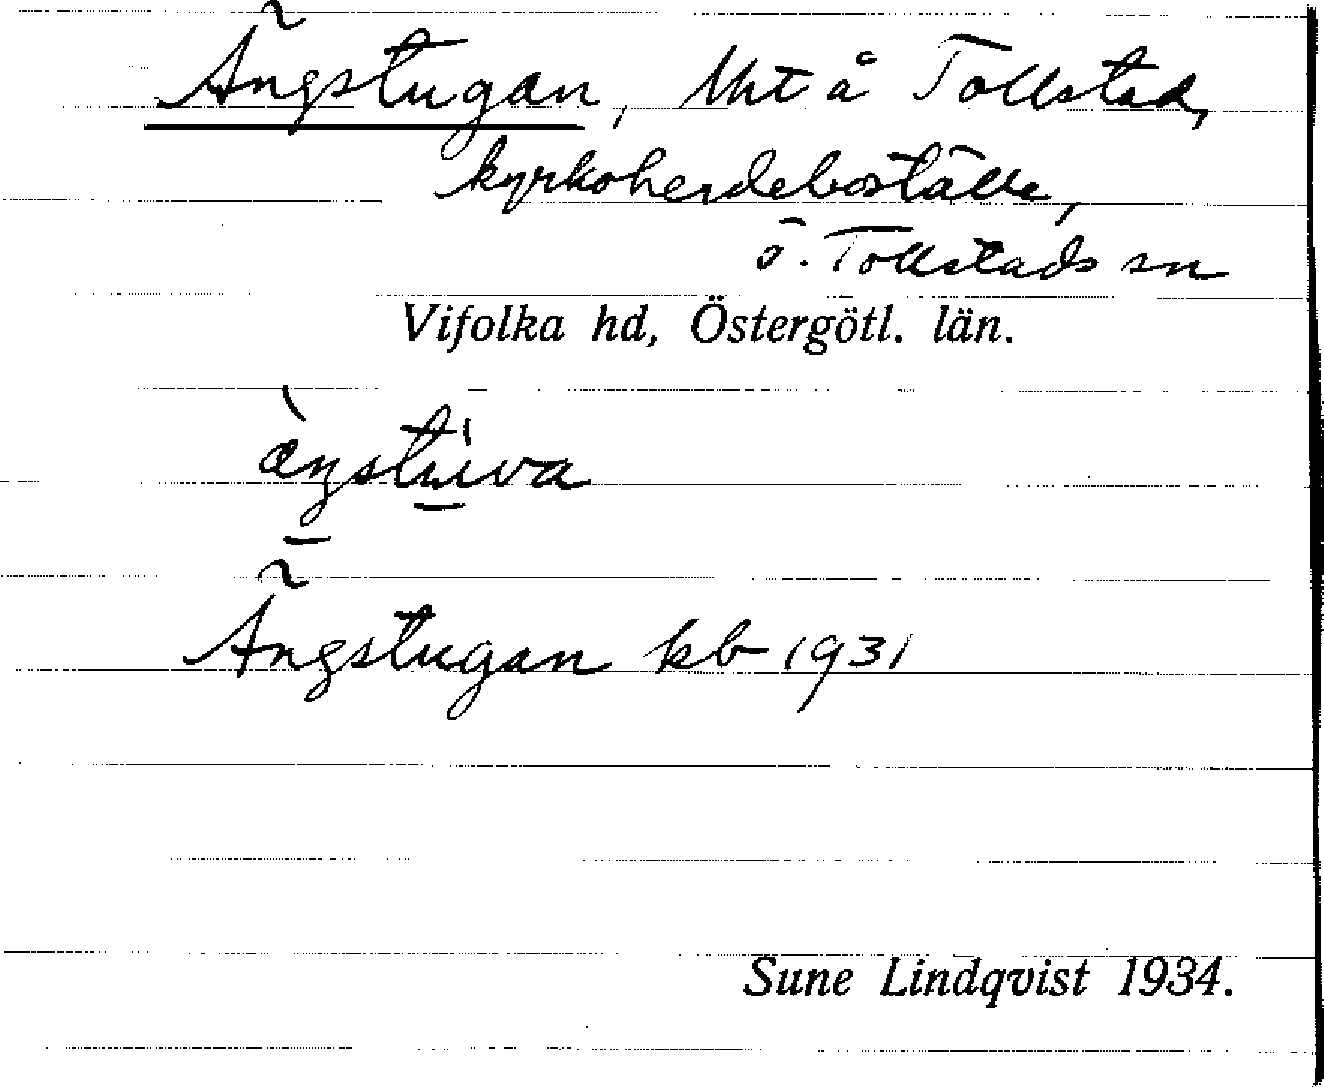 Ängstugan, lht å Tollstad,
kyrkoherdeboställe,
Ö. Tollstads sn
Vifolka hd, Östergötl. län.
Ängstugan kb 1931
Sune Lindqvist 1934.